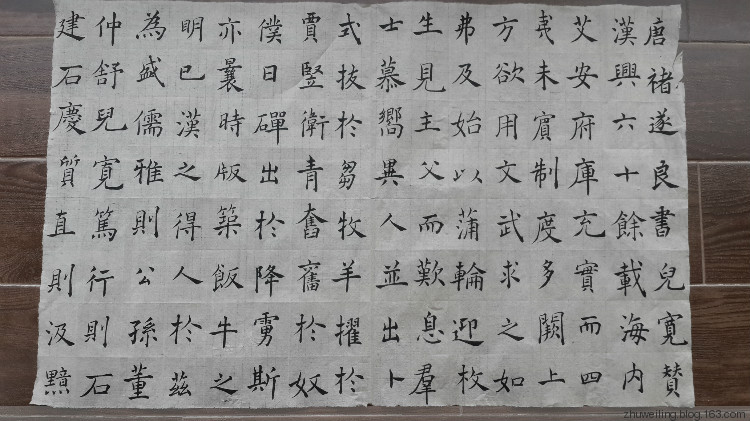 唐褚遂良書兒寬贊
漢興六十餘載海內
艾安府庫充實而四
夷未賓制度多闕上
方欲用文武求之如
弗及始以蒲輪迎枚
生見主父而歎息羣
士慕嚮異人並出卜
式拔於芻牧羊擢於
賈豎衛青奮舊於奴
僕日磾出於降虜斯
亦曩時版築飯牛之
明已漢之得人於茲
為盛儒雅則公孫董
仲舒兒寬篤行則石
建石慶質直則汲黯
zhuweiling.blog.163.com